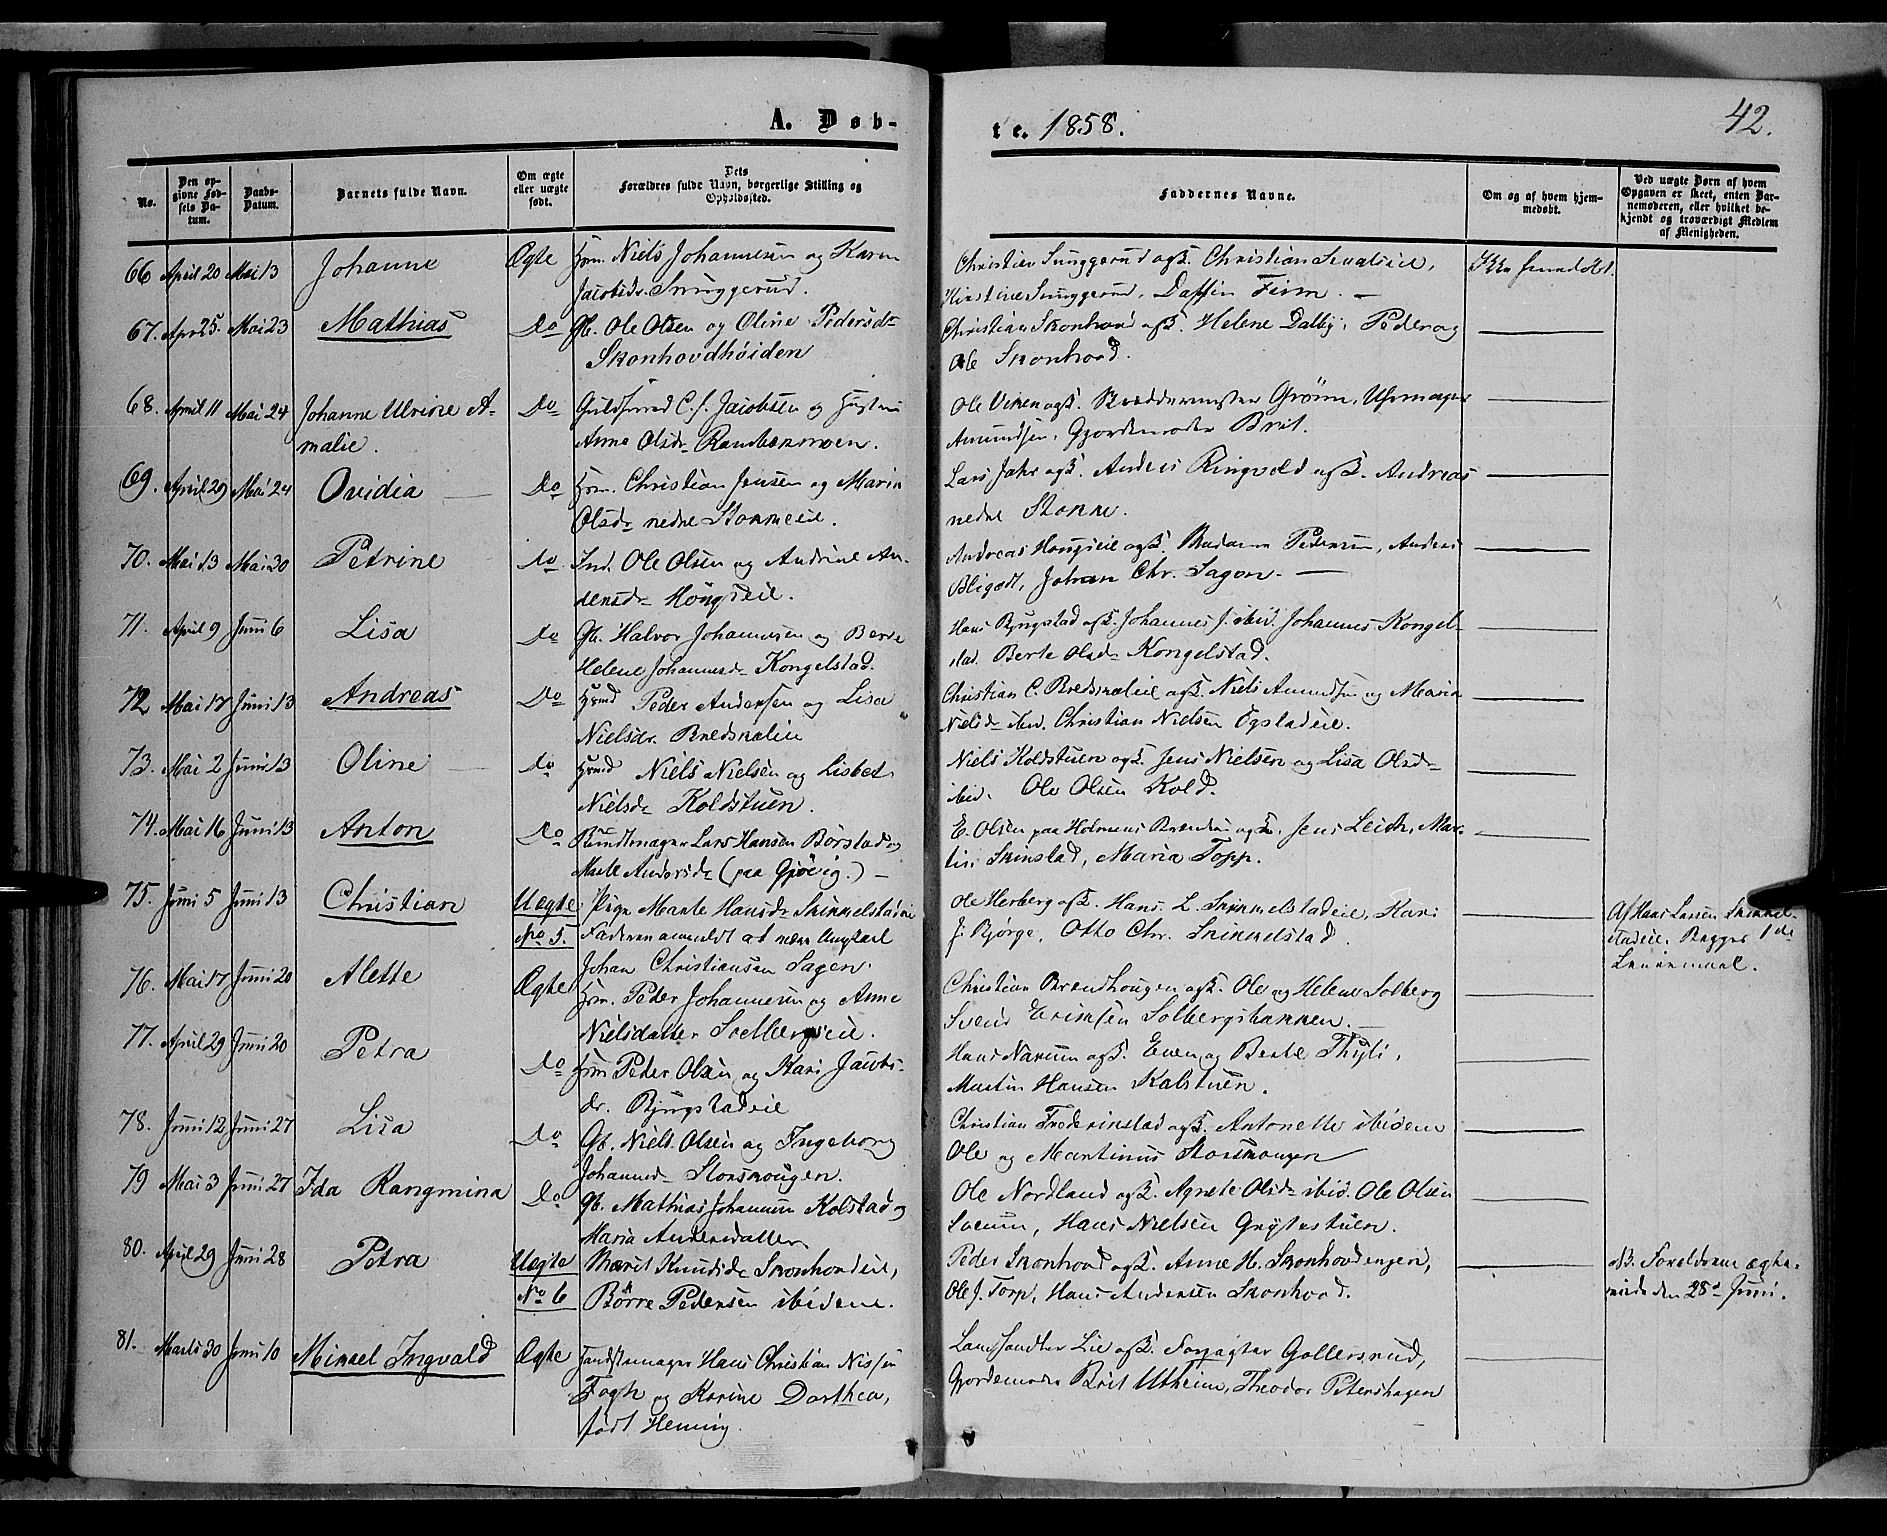 A. Døb-
te. 1858.
42.
No.
Den opgivne Fødsels Datum.
Daabs-Datum.
Barnets fulde Navn.
Om ægte eller uægte født.
Dets Forældres fulde Navn, borgerlige Stilling og Opholdssted.
Faddernes Navne.
Om og af hvem hjemmedøbt.
Ved uægte Børn af hvem Opgaven er skeet, enten Barnemoderen, eller hvilket bekjendt og troværdigt Medlem af Menigheden.
66 April 20 Mai 13 Johanne Ægte Hrm. Niels Johannesen og Karen
Jacobsdr. Snuggerud.
Christian Snuggerud og K. Christian
Snuggerud,
67. Apr 25. Mai 23 Mathias Do Gb. Ole Olsen og Oline Pedersdr
Skonhovdhøiden
Christian Skonhovd og K. Helene Dalby, Peder og
Ole Skonhovd.
68. April 11 Mai 24 Johanne Ulrikke A-
malie.
Do C. J. Jacobsen og Hustru
Anne Olsdr
Ole Viken og K. Skræddermester Grønn, Uhrmager
Amundsen, Gjordemoder Brit.
69. April 29 Mai 24 Ovidia Do Hrm. Christian Jensen og Marie
Olsdr nedre Stokkeeie.
Lars Jahr og K. Anders Ringvold og K. Andreas
nedre Stokke.
70. Mai 13 Mai 30 Petrine Do Ind. Ole Olsen og Andrine An-
dersdr Hougseie.
Andreas Hougseie og K. Madame Petersen, Anders
Bligodt, Johan Chr. Sagen.
71. April 9 Juni 6 Lisa Do Gb. Halvor Johannesen og Berte
Helene Johannesdr Kongelstad.
Hans Bjugstad og K. Johannes J. ibid. Johannes Kongel-
stad. Berte Olsdr Kongelstad.
72 Mai 17 Juni 13 Andreas Do Hmd Peder Andersen og Lisa
Nielsdr. Bredskalie
Christian C. Bredskaleie og K. Niels Amundsen og Maria
Nielsdr ibid. Christian Nielsen Egstadeie.
73. Mai 2 Juni 13 Oline Do Hmd Niels Nielsen og Lisbet
Nielsdr Koldstuen.
Niels Koldstuen og K. Jens Nielsen og Lisa Olsdr
ibid. Ole Olsen Kold.
74. Mai 16 Juni 13 Anton Do Bundtmager Lars Hansen Børstad og
Marte Andersdr (paa Gjøvig.)
E. Olsen paa Holmens og K. Jens Leich, Mar-
tin Skinstad, Maria Topp.
75. Juni 5 Juni 13 Christian Uægte
No 5.
Pige Marte Hansdr Skimmelstadeie
Faderen anmeldt at være Ungkarl
Johan Christiansen Sagen.
Ole Herberg og K. Hans L. Skimmelstadeie, Kari
J. Bjørge, Otto Chr. Skimmelstad.
Af Hans Larsen Skimmel-
stadeie. Begges 1ste
Leiermaal.
76. Mai 17 Juni 20 Alette Ægte Hrm. Peder Johannesen og Anne
Nielsdatter Solbergseie.
Christian Brendhougen og K. Ole og Helene Solberg
Svend Eriksen Solbergshakken.
77. April 29 Juni 20 Petra Do Hrm Peder Olsen og Kari Jacobs-
dr. Bjugstadeie
Hans Narum og K. Even og Berte Thyli,
Martin Hansen Kalstuen.
78. Juni 12 Juni 27 Lisa Do Gb. Niels Olsen og Ingeborg
Johannesdr Storskougen.
Christian Frederikstad og K. Antonette ibidem
Ole og Martinus Storskougen
79 Mai 3 Juni 27 Ida Rangmina Do Gb. Mathias Johannesen Kolstad og
Maria Andersdatter
Ole Nordland og K. Agnete Olsdr ibid. Ole Olsen
Hans Nielsen Grytestuen.
80. April 29 Juni 28 Petra Uægte
No 6
Marit Knudsdr Skonhovdeie,
Børre Pedersen ibidem.
Peder Skonhovd og K. Anne H. Skonhovdengen,
Ole J. Torp, Hans Andersen Skonhovd.
NB. Forældrene ægte-
viede den 28de Juni.
81. Marts 30 Juni 10 Mikael Ingvald Ægte Hans Christian Nissen
Fogh og Karine Dorthea,
født Heming.
Landhandler Lie og K. Forpagter Gollersrud,
Gjordemoder Brit Utheim, Theodor Petershagen